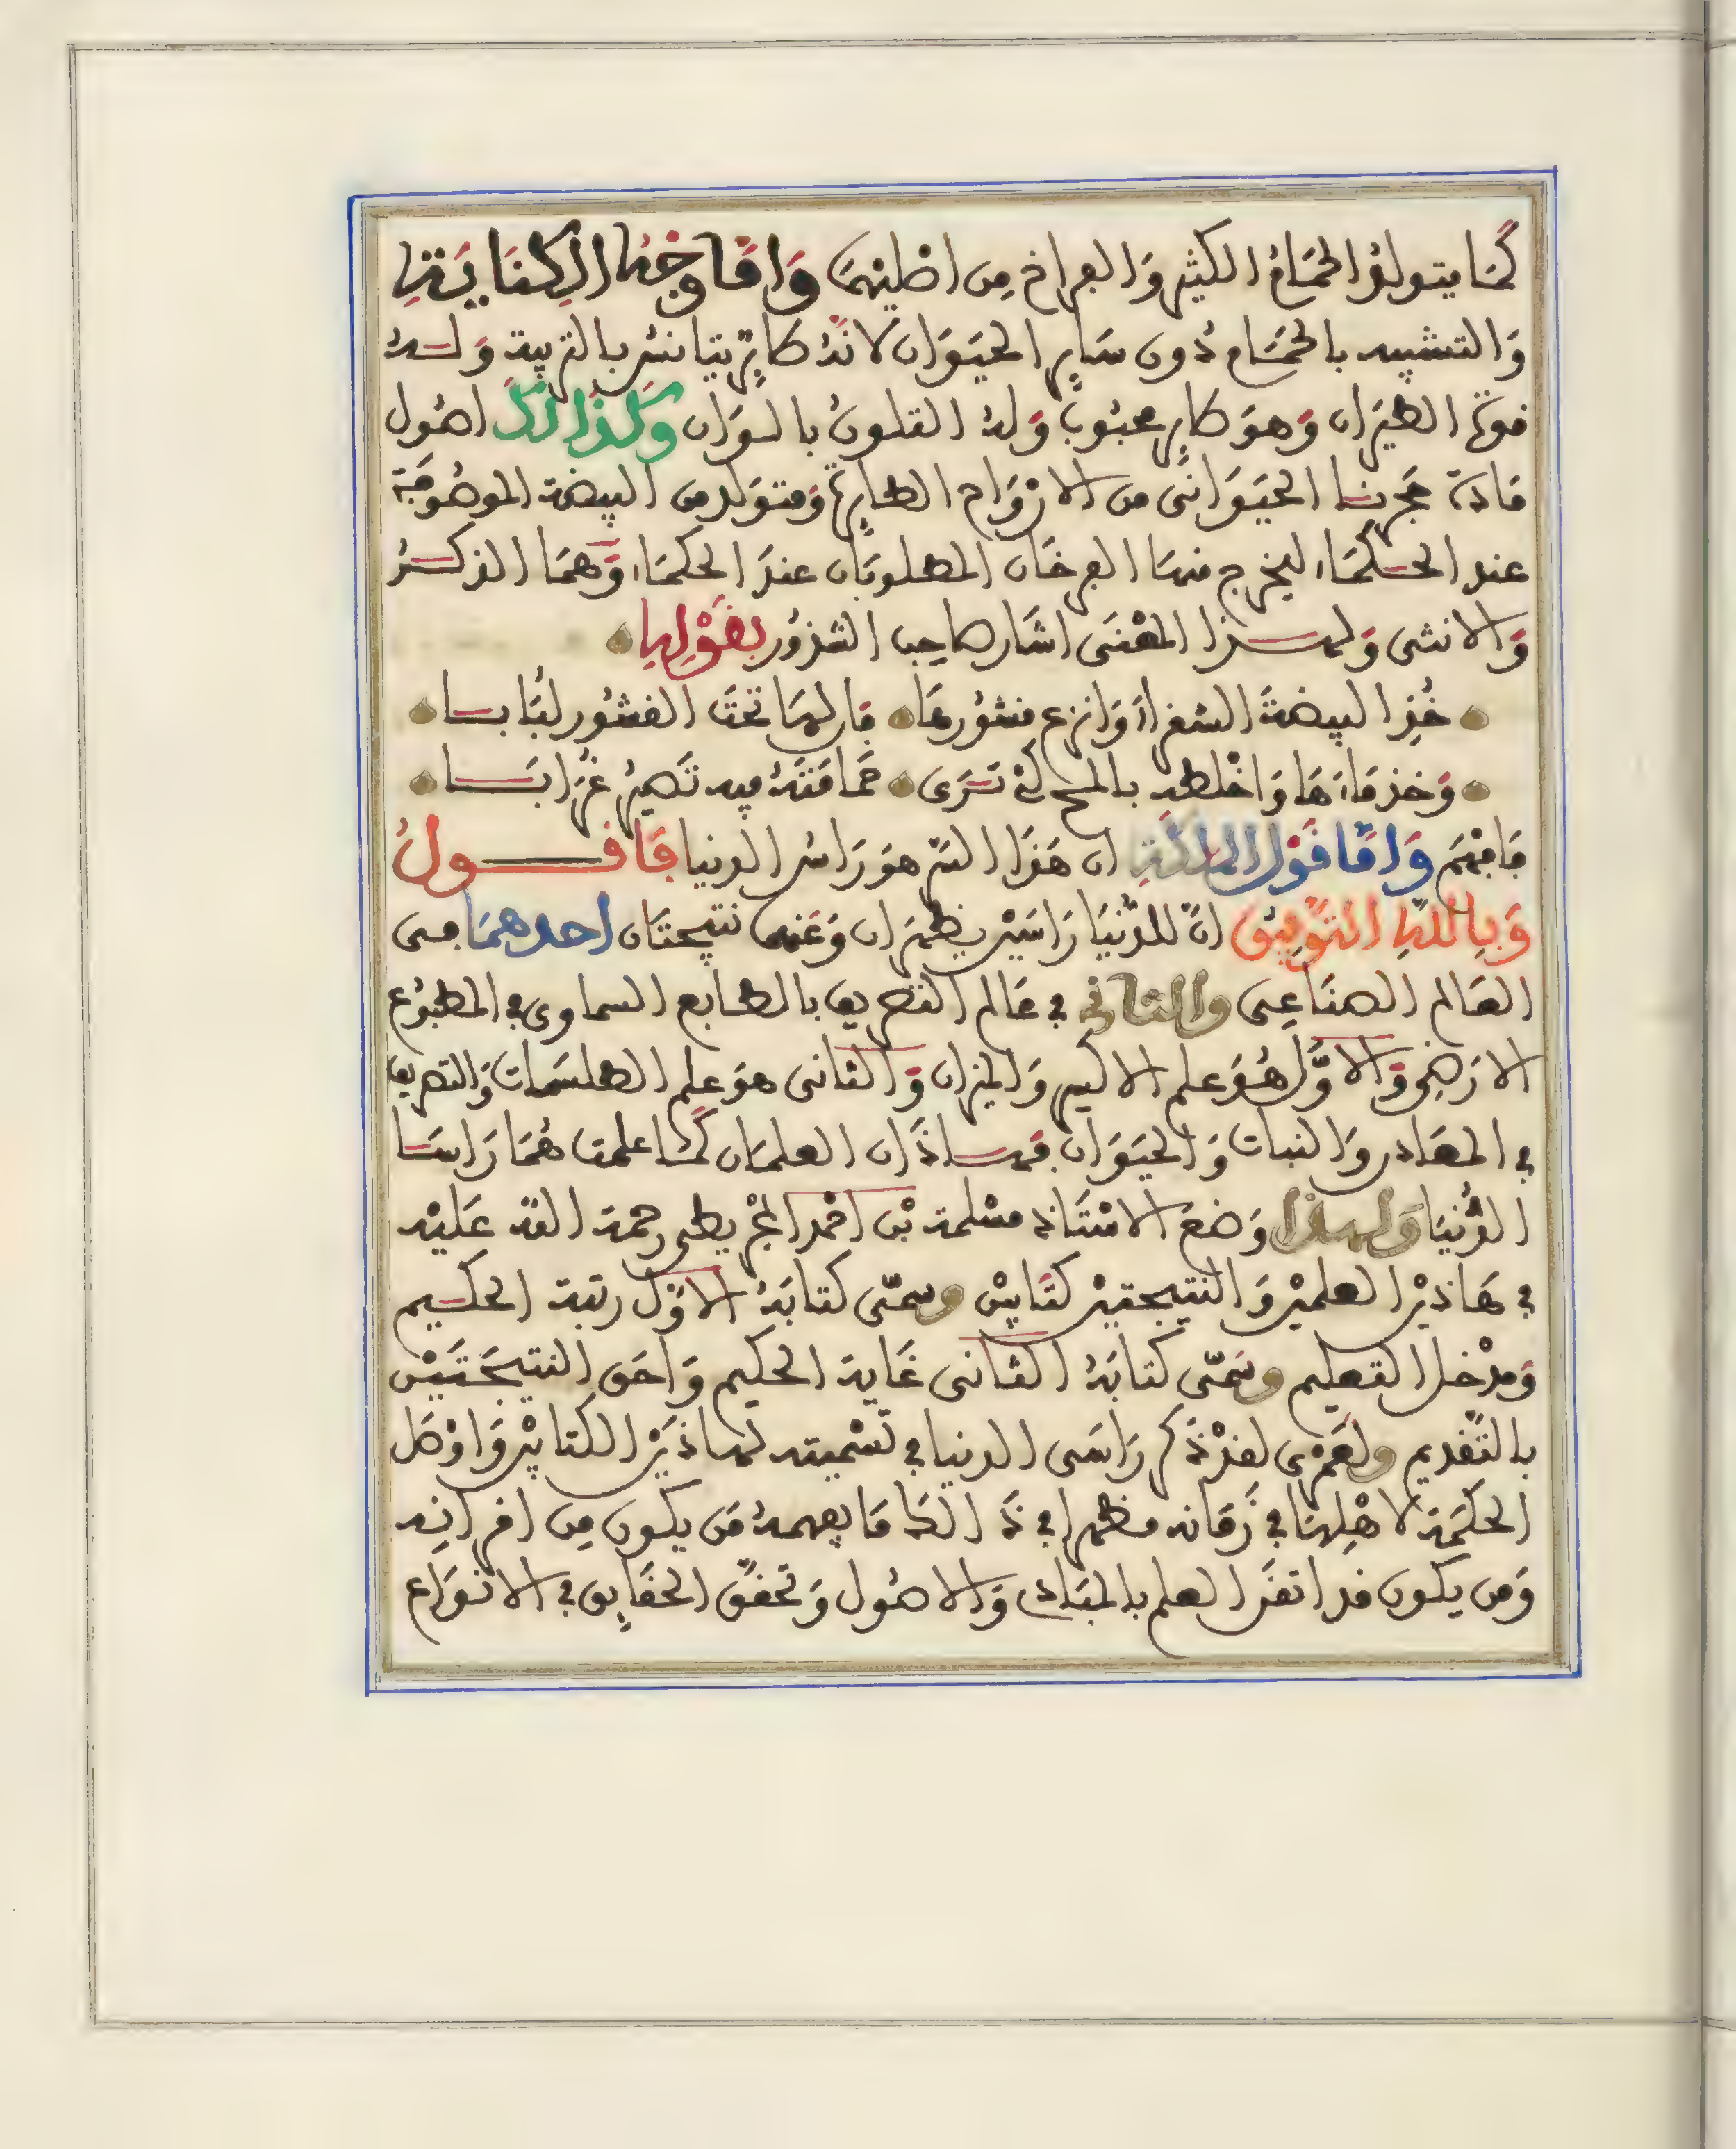 كَمَا يتولدُ الحمَامُ الكثير وَالفراخ مِن اصْليهمَا وَامَّا وَجْهُ الكِنَايَةِ
وَالتشبيه بالحمَام دُون سَاير الحيَوَان لانهُ طاير يتانسُ بالتربية وَلهُ
قوة الطيَران وَهوَ طاير محبُوب وَلهُ التلونُ بالوَان وَكَذَالكَ اصُول
مَادة حجرنا الحيَوَانى من الازْوَاج الطايرة وَمتوَلد من البيضة الموصُوفَة
عند الحكمَاء ليخرج منهَا الفرخَان المطلوبَان عندَ الحكمَاء وَهمَا الذكرُ
وَالانثى وَلهذا المعْنَى اشَار صَاحِب الشذوُر بقَوْلِهِ
خُذِ البيضةَ الشقراءَ وَانزع قشوُرهَا فان لهَا تحتَ القشُور لبَابا
وَخذ مَاءهَا وَاخْلطه بالملح كىْ تَرَى حَمَامَتَهُ فيه تَصيرُ غُرَابَا
فَافهَم وَامَّا قَوْل المائةِ ان هَذَا السّر هو رَاسُ الدنيا فَاقولُ
وَبِاللهِ التَّوفِيق انّ للدُّنيَا رَاسَيْن يظهَران وَعَنهمَا نتيجتَان احدهمَا فى
العَالم الصنَاعِى وَالثانى في عَالم التصريف بالطابع السماوى في المطبُوع
الارَضِي وَالاوَّل هُوَ علم الاكسير وَالميزان وَالثانى هوَ علم الطلسَمات وَالتصريف
في المعَادن وَالنبات وَالحيَوَان فهاذَان العلمَان كَمَا علمت هُمَا رَاسَا
الدُّنيَا وَلهذا وَضعَ الاسْتَاذ مسْلمة بْن احْمد المجْريطي رحمة الله عَليْه
في هَاذيْن العلميْن وَالنتيجتيْن كتَابيْن وسمّى كتابَهُ الاوّل رتبة الحكيم
وَمدْخل التعليم وسَمّى كتابَهُ الثانى غَاية الحكيم وَاحَق النتيجَتَيْن
بالتَّقديم ولعَمْرى لقدْ ذَكر رَاسَى الدنيا في تسْميته لهاذيْن الكتابيْن وَاوْصَل
الحكمَة لاهْلِهَا في زَمَانه مظهرا في ذَالك مَا يفهمهُ مَن يكون مِن اقرانِه
وَمن يكون قد اتقَن العلم بالمبَادى وَالاصُول وَتحقّق الحقَايق في الانوَاع